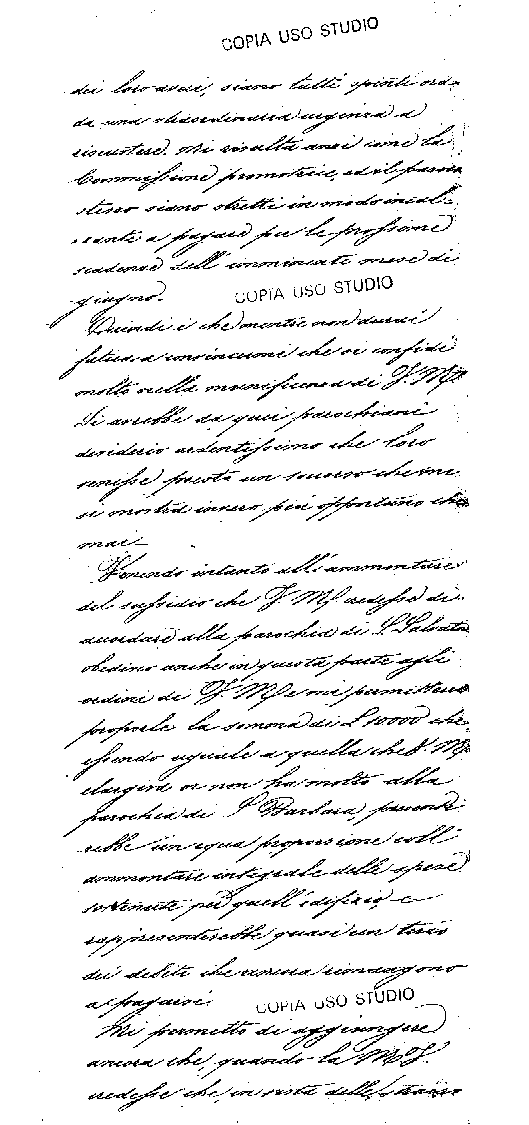 COPIA USO STUDIO
dei loro averi, siano tutti spinti ora
da una straordinaria urgenza a
riscuotere. Mi risulta anzi che la
Commissione promotrice, ed il parroco
stesso siano stretti in modo incal-
zante a pagare per le prossime
scadenze dell'imminente mese di
giugno.
COPIA USO STUDIO
Quindi è che mentre non durai
fatica a convincermi che vi confidi
molto nella munificenza di V. M.
Si avrebbe da quei parochiani
desiderio ardentissimo che loro
venisse presto un soccorso che
si mostra invero più opportuno che
mai.
Venendo intanto all'ammontare
del sussidio che V. M. credesse di
accordare alla parochia di S. Salvato
obedirò anche in questa parte agli
ordini di V. M. e mi permetterò
proporle la somma di L. 10000 che
essendo uguale a quella che V. M.
elargiva or non ha molto alla
parochia di S. Barbara, presente
rebbe un'equa proporzione coll'
ammontare integrale delle spese
sostenute per quell'edifizio, e
rappresenterebbe quasi un terzo
dei debiti che ancora rimangono
a pagarsi.
COPIA USO STUDIO
Mi permetto di aggiungere
ancora che, quando la M. V.
credesse che, in vista delle